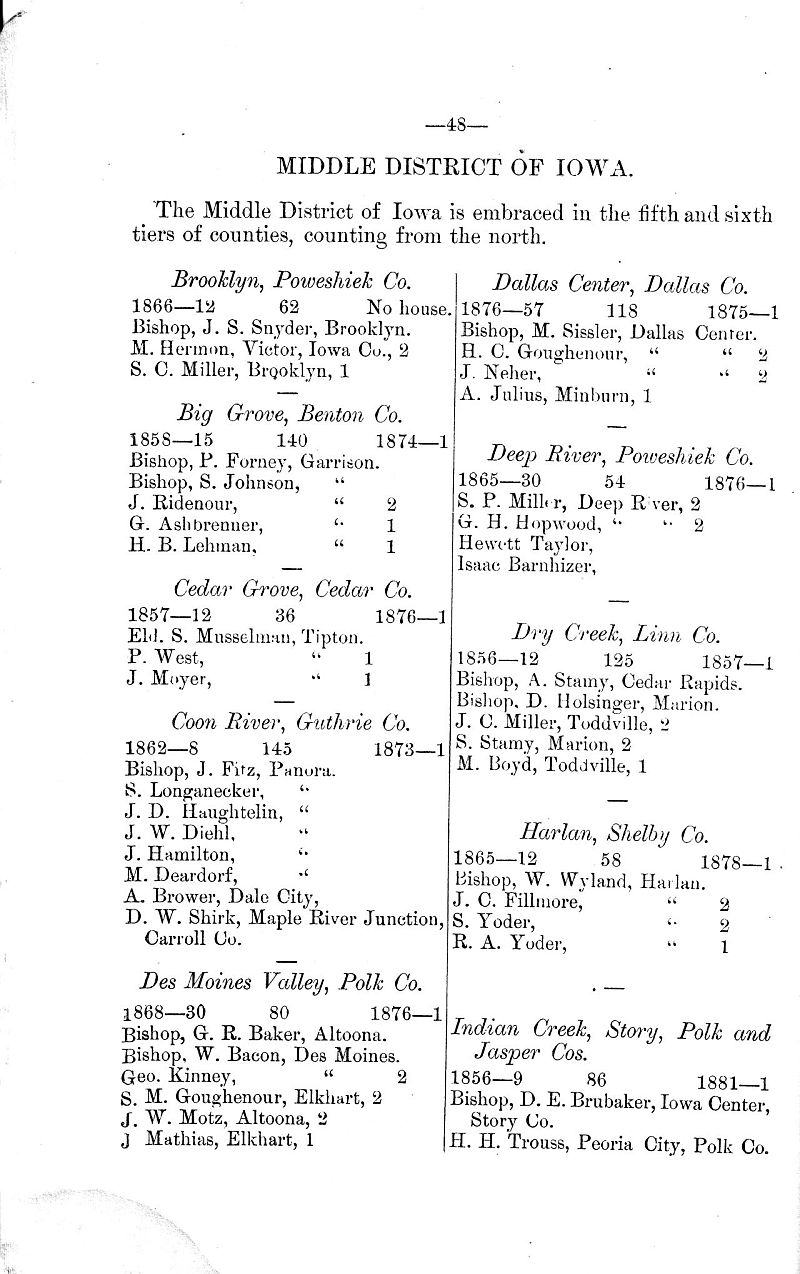 —48—
MIDDLE DISTRICT OF IOWA.
The Middle District of Iowa is embraced in the fifth and sixth
tiers of counties, counting from the north.
Brooklyn, Poweshiek Co.
1866—12 62 No house.
Bishop, J. S. Snyder, Brooklyn.
M. Hermon, Victor, Iowa Co., 2
S. C. Miller, Brooklyn, 1
—
Big Grove, Benton Co.
1858—15 140 1874—1
Bishop, P. Forney, Garrison.
Bishop, S. Johnson, “
J. Ridenour, “ 2
G. Ashbrenner, “ 1
H. B. Lehman, “ 1
—
Cedar Grove, Cedar Co.
1857—12 36 1876—1
Eld. S. Musselman, Tipton.
P. West, “ 1
J. Moyer, “ 1
—
Coon River, Guthrie Co.
1862—8 145 1873—1
Bishop, J. Fitz, Panora.
S. Longanecker, “
J. D. Haughtelin, “
J. W. Diehl, “
J. Hamilton, “
M. Deardorf, “
A. Brower, Dale City,
D. W. Shirk, Maple River Junction,
Carroll Co.
—
Des Moines Valley, Polk Co.
1868—30 80 1876—1
Bishop, G. R. Baker, Altoona.
Bishop, W. Bacon, Des Moines.
Geo. Kinney, “ 2
S. M. Goughenour, Elkhart, 2
J. W. Motz, Altoona, 2
J Mathias, Elkhart, 1
Dallas Center, Dallas Co.
1876—57 118 1875—1
Bishop, M. Sissler, Dallas Center.
H. C. Goughenour, “ “ 2
J. Neher, “ “ 2
A. Julius, Minburn, 1
—
Deep River, Poweshiek Co.
1865—30 54 1876—1
S. P. Miller, Deep River, 2
G. H. Hopwood, “ “ 2
Hewett Taylor,
Isaac Barnhizer,
—
Dry Creek, Linn Co.
1856—12 125 1857—1
Bishop, A. Stamy, Cedar Rapids.
Bishop, D. Holsinger, Marion.
J. C. Miller, Toddville, 2
S. Stamy, Marion, 2
M. Boyd, Toddville, 1
—
Harlan, Shelby Co.
1865—12 58 1878—1
Bishop, W. Wyland, Harlan.
J. C. Fillmore, “ 2
S. Yoder, “ 2
R. A. Yoder, “ 1
—
Indian Creek, Story, Polk and
Jasper Cos.
1856—9 86 1881—1
Bishop, D. E. Brubaker, Iowa Center,
Story Co.
H. H. Trouss, Peoria City, Polk Co.